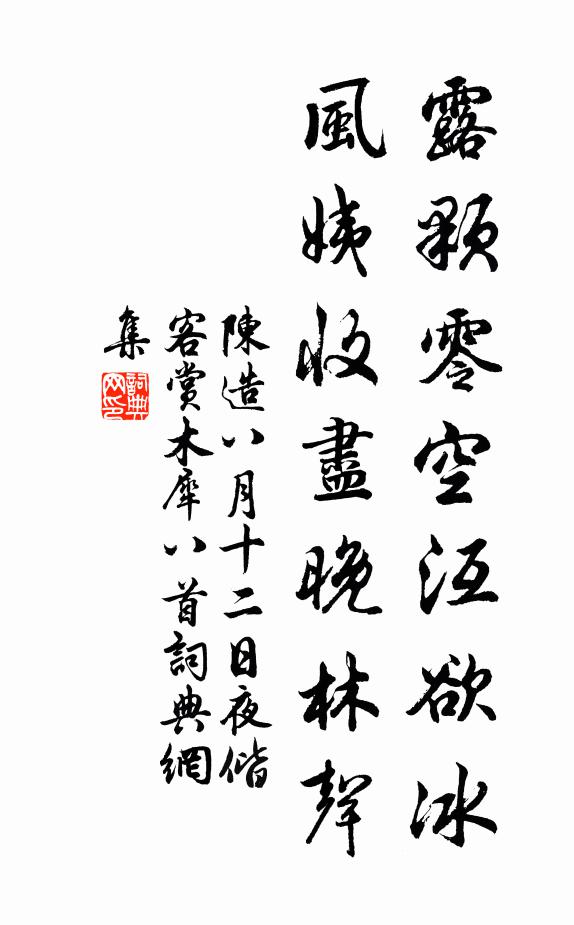 露顆零空沍欲冰
風姨收盡晚林聲
陳造八月十二日夜偕
客賞木犀八首詞典網
集
詞典
网印